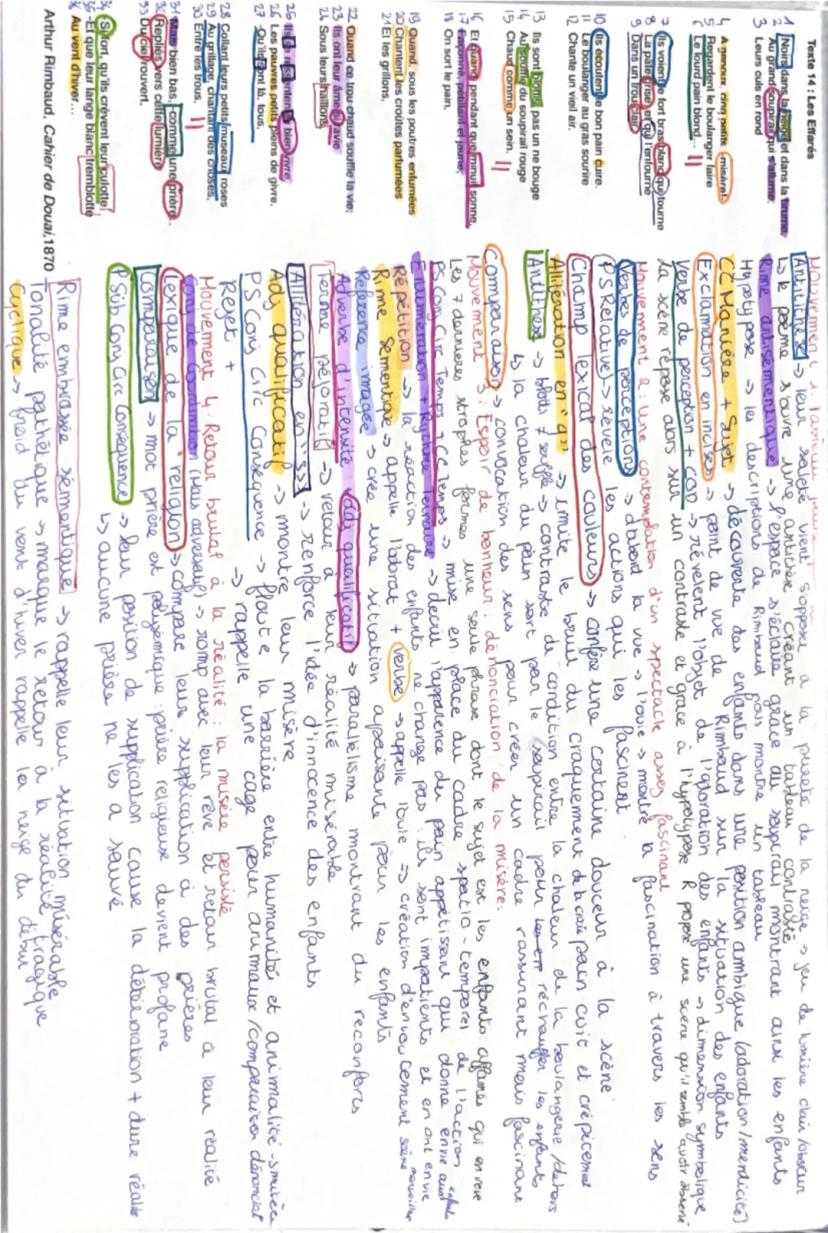 Texte 14 : Les Effarés
1 Noirs dans la neige et dans la brume,
2 Au grand soupirail qui s'allume,
3 Leurs culs en rond
4 A genoux, cinq petits, -misère!-
5 Regardent le boulanger faire
6 Le lourd pain blond...
7 Ils voient le fort bras blanc qui tourne
8 La pâte grise et qui l'enfourne
9 Dans un trou clair.
10 Ils écoutent le bon pain cuire.
11 Le boulanger au gras sourire
12 Chante un vieil air.
13 Ils sont blottis, pas un ne bouge
14 Au souffle du soupirail rouge
15 Chaud comme un sein.
16 Et quand, pendant que minuit sonne,
17 Façonné, pétillant et jaune,
18 On sort le pain,
19 Quand, sous les poutres enfumées
20 Chantent les croûtes parfumées
21 Et les grillons,
22 Quand ce trou chaud souffle la vie;
23 Ils ont leur âme si ravie
24 Sous leurs haillons,
25 Ils se ressentent si bien vivre
26 Les pauvres petits pleins de givre,
27 - Qu'ils sont là, tous,
28 Collant leurs petits museaux roses
29 Au grillage, chantant des choses,
30 Entre les trous,
31 Mais bien bas, - comme une prière...
32 Repliés vers cette lumière
33 Du ciel rouvert,
34 - Si fort, qu'ils crèvent leur culotte
35 - Et que leur lange blanc tremblotte
36 Au vent d'hiver...
Arthur Rimbaud, Cahier de Douai, 1870
Mouvement 1:
Antithèse -> leur saleté vient s'opposer à la pureté de la neige -> jeu de lumière clair/obscur
↳ le poème s'ouvre une antithèse créant un tableau contrasté
Rime antisémentique -> l'espace s'éclaire grâce au soupirail montrant ainsi les enfants
Hypotypose -> les descriptions de Rimbaud nous montre un tableau
CC Manière + Sujet -> découverte des enfants dans une position ambigue (adoration/mendicité)
Exclamation en incise -> point de vue de Rimbaud sur la situation des enfants
Verbe de perception + COD -> révèlent l'objet de l'adoration des enfants -> dimension symbolique
La scène repose alors sur un contraste et grâce à l'hypotypose R propose une scène qu'il semble avoir observé
Mouvement 2: Une contemplation d'un spectacle assez fascinant
Verbes de perception -> d'abord la vue -> l'ouïe -> montre la fascination à travers les sens
PS Relative -> révèle les actions qui les fascinent
Champ lexical des couleurs -> confère une certaine douceur à la scène
Allitération en "q" -> imite le bruit du craquement du pain cuit et crépitement
Antithèse -> blottis ≠ souffle -> contraste de condition entre la chaleur de la boulangerie / dehors
↳ la chaleur du pain sort par le soupirail pour réchauffer les enfants
Comparaison -> convocation des sens pour créer un cadre rassurant mais fascinant
Mouvement 3: Espoir de bonheur: dénonciation de la misère.
Les 7 dernières strophes formes une seule phrase dont le sujet est les enfants affamés qui en rêve
PS Conj Circ Temps + CC Temps -> mise en place du cadre spatio-temporel de l'action
Énumération + Rythme ternaire -> décrit l'apparence du pain appétissant qui donne envie aux
Répétition -> la réaction des enfants ne change pas: ils sont impatients et en ont envie
Rime sémentique -> appelle l'odorat + verbe -> appelle l'ouïe -> création d'envoûtement scène merveilleuse
Référence imagée -> crée une situation apaisante pour les enfants
Adverbe d'intensité + adj qualificatif -> parallélisme montrant du réconforts
Terme péjoratif -> retour à leur réalité misérable
Allitération en "s" -> renforce l'idée d'innocence des enfants
Adj qualificatif -> montre leur misère
PS Conj Circ Conséquence -> floute la barrière entre humanité et animalité -> misère
Rejet + -> rappelle une cage pour animaux /comparaison
Mouvement 4: Retour brutal à la réalité: la misère persiste
Conj de Coordination (Mais adversatif) -> romp avec leur rêve et retour brutal à leur réalité
Lexique de la "religion" -> compare leur supplication à des prières
Comparaison -> mot prière est polysémique: prière religieuse devient profane
PSub Conj Circ Conséquence -> leur position de supplication cause la détérioration + dure réalité
↳ aucune prière ne les a sauvé
Rime embrassée sémentique -> rappelle leur situation misérable
Tonalité pathétique -> marque le retour à la réalité tragique
Cyclique -> froid du vent d'hiver rappelle la neige du début